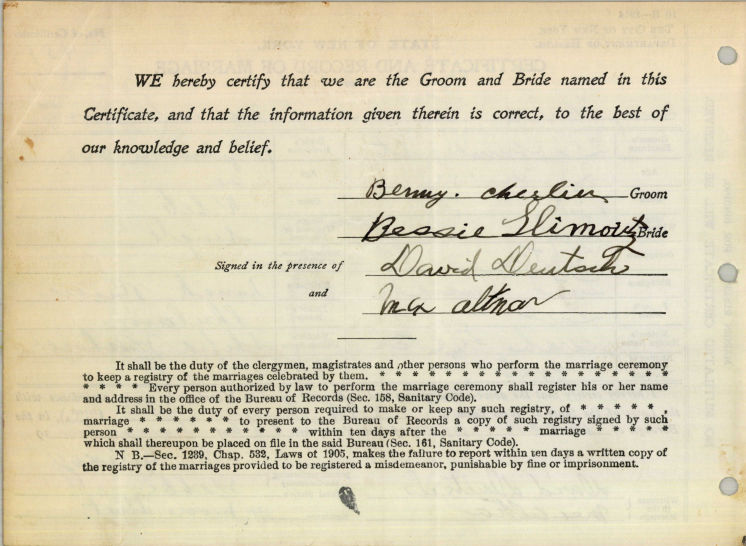 WE hereby certify that we are the Groom and Bride named in this
Certificate, and that the information given therein is correct, to the best of
our knowledge and belief.
Benny. Cherlin Groom
Bessie Slimovitz Bride
Signed in the presence of David Deutsch
and Max Altman
It shall be the duty of the clergymen, magistrates and other persons who perform the marriage ceremony
to keep a registry of the marriages celebrated by them. * * * * * * * * * * * * * * * *
* * * * Every person authorized by law to perform the marriage ceremony shall register his or her name
and address in the office of the Bureau of Records (Sec. 158, Sanitary Code).
It shall be the duty of every person required to make or keep any such registry, of * * * * * ,
marriage * * * * * * to present to the Bureau of Records a copy of such registry signed by such
person * * * * * * * * * * within ten days after the * * * * * marriage * * * * *
which shall thereupon be placed on file in the said Bureau (Sec. 161, Sanitary Code).
N B.—Sec. 1239, Chap. 532, Laws of 1905, makes the failure to report within ten days a written copy of
the registry of the marriages provided to be registered a misdemeanor, punishable by fine or imprisonment.